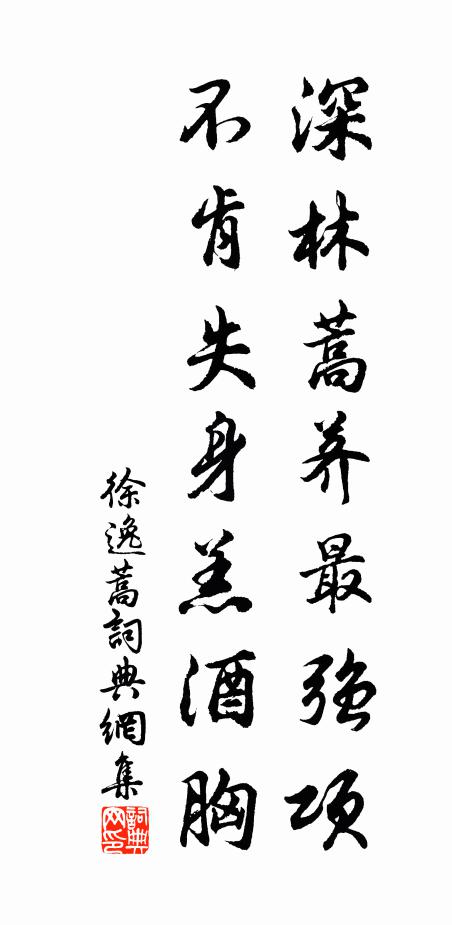 深林蒿荞最強項
不肯失身羔酒胸
徐逸蒿詞典網集
詞典网印